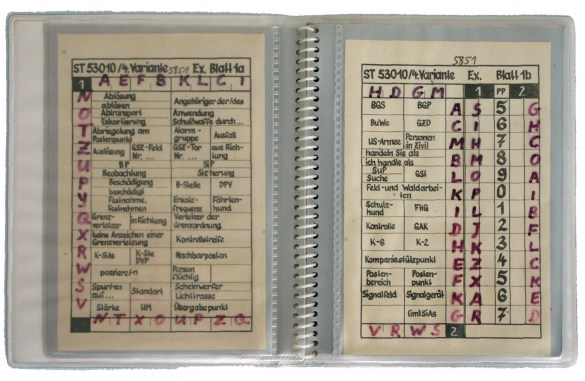 ST 53010/4. Variante 5851 Ex. Blatt 1a
1 A E F B K L C I
N
O
T
Z
U
P
Y
Q
X
R
W
S
V
Ablösung
ablösen
Angehöriger der/des
Abtransport
Eskortierung
Anwendung
Schußwaffe durch...
Abriegelung am
Postenpunkt
Alarm-
gruppe
Ausfall
Auslösung
GSZ-Feld
Nr. ...
GSZ-Tor
Nr. ...
aus Rich-
tung
BP
SiP
Beobachtung
Sicherung
Beschädigung
beschädigt
B-Stelle
DPV
Festnahme,
festnehmen
Ersatz-
frequenz
Fährten-
hund
Grenz-
verletzer
in Richtung
Verletzer der
Grenzordnung
keine Anzeichen einer
Grenzverletzung
Kontrollstreife
K-SiAs
K-Ste
DVP
Nachbarposten
passiere/-t
Person
flüchtig
Spur/en
auf...
Standort
Scheinwerfer
Lichttrasse
Stärke
HM
Übergabepunkt
N T X O U P Z Q
5851
ST 53010/4. Variante Ex. Blatt 1b
H D G M 1 PP 2
BGS BGP A S 5 G
BuWe GZD C I 6 H
US-Armee Personen
in Zivil M H 7 C
handeln Sie als
ich handle als B M 8 O
SuP
Suche GSi L O 9 A
Feld- und Waldarbei-
ten K P 0 I
Schutz-
hund FHG I L 1 B
Kontrolle GAK D J 2 F
K-6 K-2 H K 3 L
Kompaniestützpunkt E Z 4 C
Posten-
bereich Posten-
punkt F X 5 K
Signalfeld Signalgerät K A 6 E
GmK SiAs G R 7 D
V R W S 2